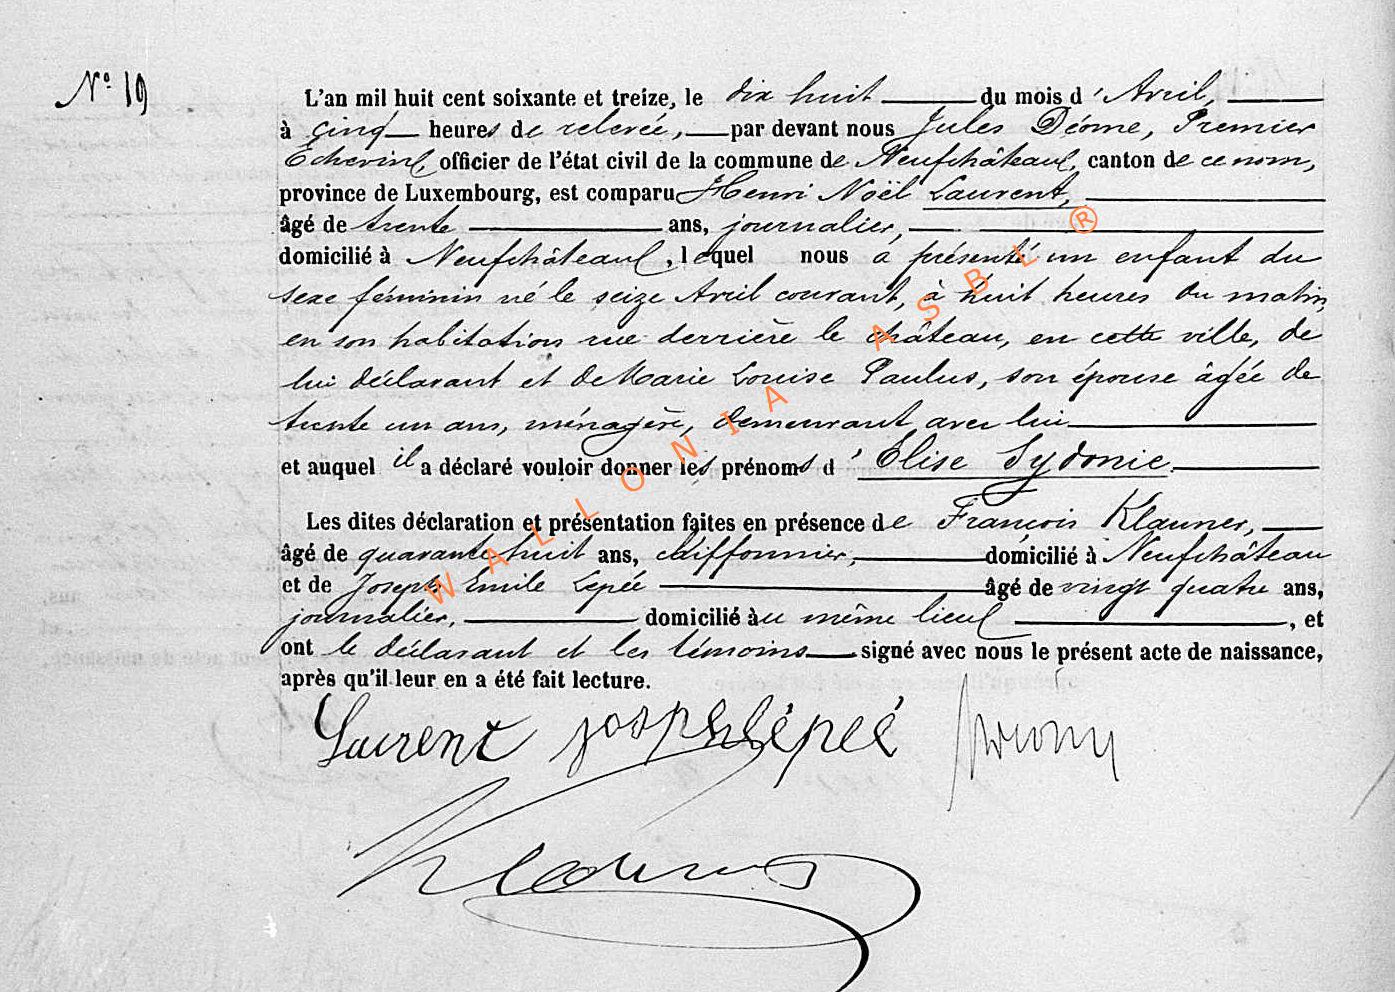 Nº 19
L'an mil huit cent soixante et treize, le dix huit du mois d'Avril,
à cinq heures de relevée, par devant nous Jules Déome, Premier
Echevin, officier de l'état civil de la commune de Neufchâteau, canton de ce nom,
province de Luxembourg, est comparu Henri Noël Laurent,
âgé de trente ans, journalier,
domicilié à Neufchâteau, lequel nous a présenté un enfant du
sexe féminin né le seize Avril courant, à huit heures du matin,
en son habitation rue derrière le château, en cette ville, de
lui déclarant et de Marie Louise Paulus, son épouse âgée de
trente un ans, ménagère, demeurant avec lui
et auquel il a déclaré vouloir donner les prénoms d'Elise Sydonie
Les dites déclaration et présentation faites en présence de François Klauner,
âgé de quarante huit ans, chiffonnier, domicilié à Neufchâteau
et de Joseph Emile Lepée âgé de vingt quatre ans,
journalier, domicilié au même lieu, et
ont le déclarant et les témoins signé avec nous le présent acte de naissance,
après qu'il leur en a été fait lecture.
Laurent Josph Lépeé
Klauner
WALLONIA ASBL ®